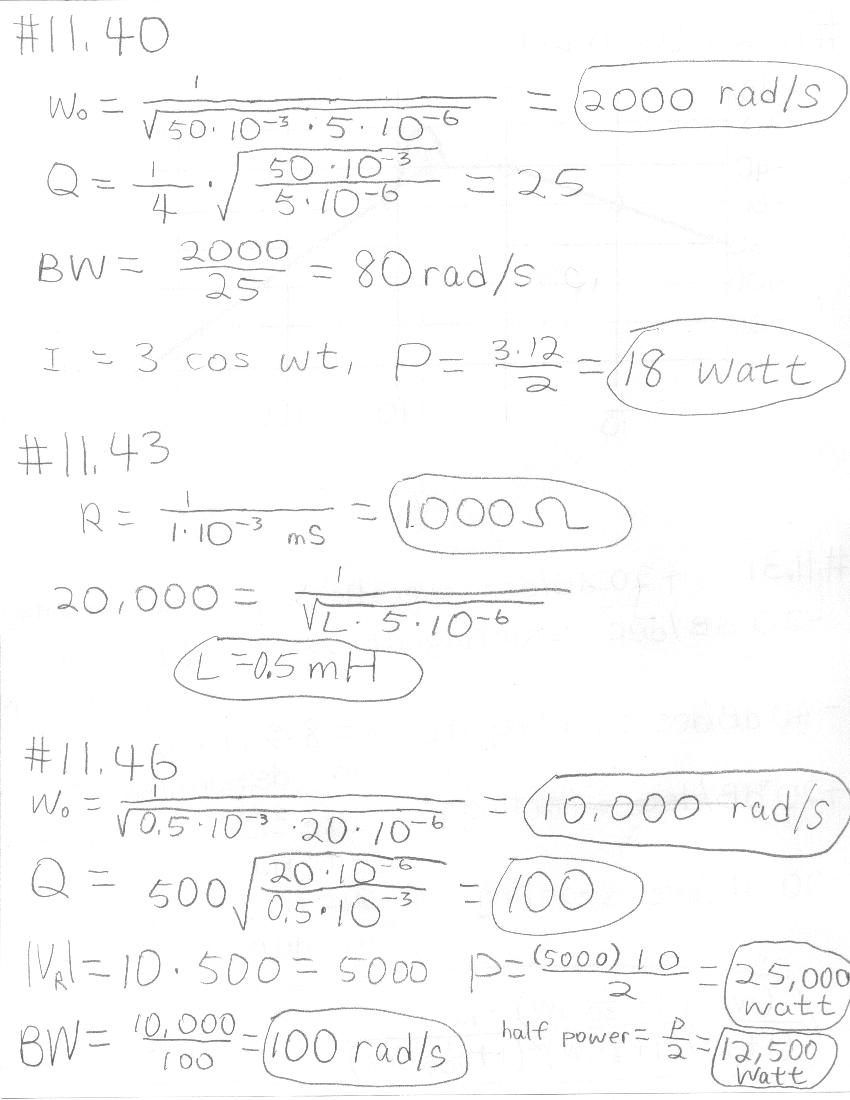 #11.40
W₀ = 1/√(50·10⁻³ · 5·10⁻⁶) = 2000 rad/s
Q = 1/4 · √(50·10⁻³/5·10⁻⁶) = 25
BW = 2000/25 = 80 rad/s
I = 3 cos wt, P = 3·12/2 = 18 watt
#11.43
R = 1/(1·10⁻³ mS) = 1000Ω
20,000 = 1/√(L · 5·10⁻⁶)
L = 0.5 mH
#11.46
W₀ = 1/√(0.5·10⁻³ · 20·10⁻⁶) = 10,000 rad/s
Q = 500√(20·10⁻⁶/0.5·10⁻³) = 100
|V_R| = 10 · 500 = 5000 P = (5000) 10/2 = 25,000 watt
BW = 10,000/100 = 100 rad/s half power = P/2 = 12,500 watt